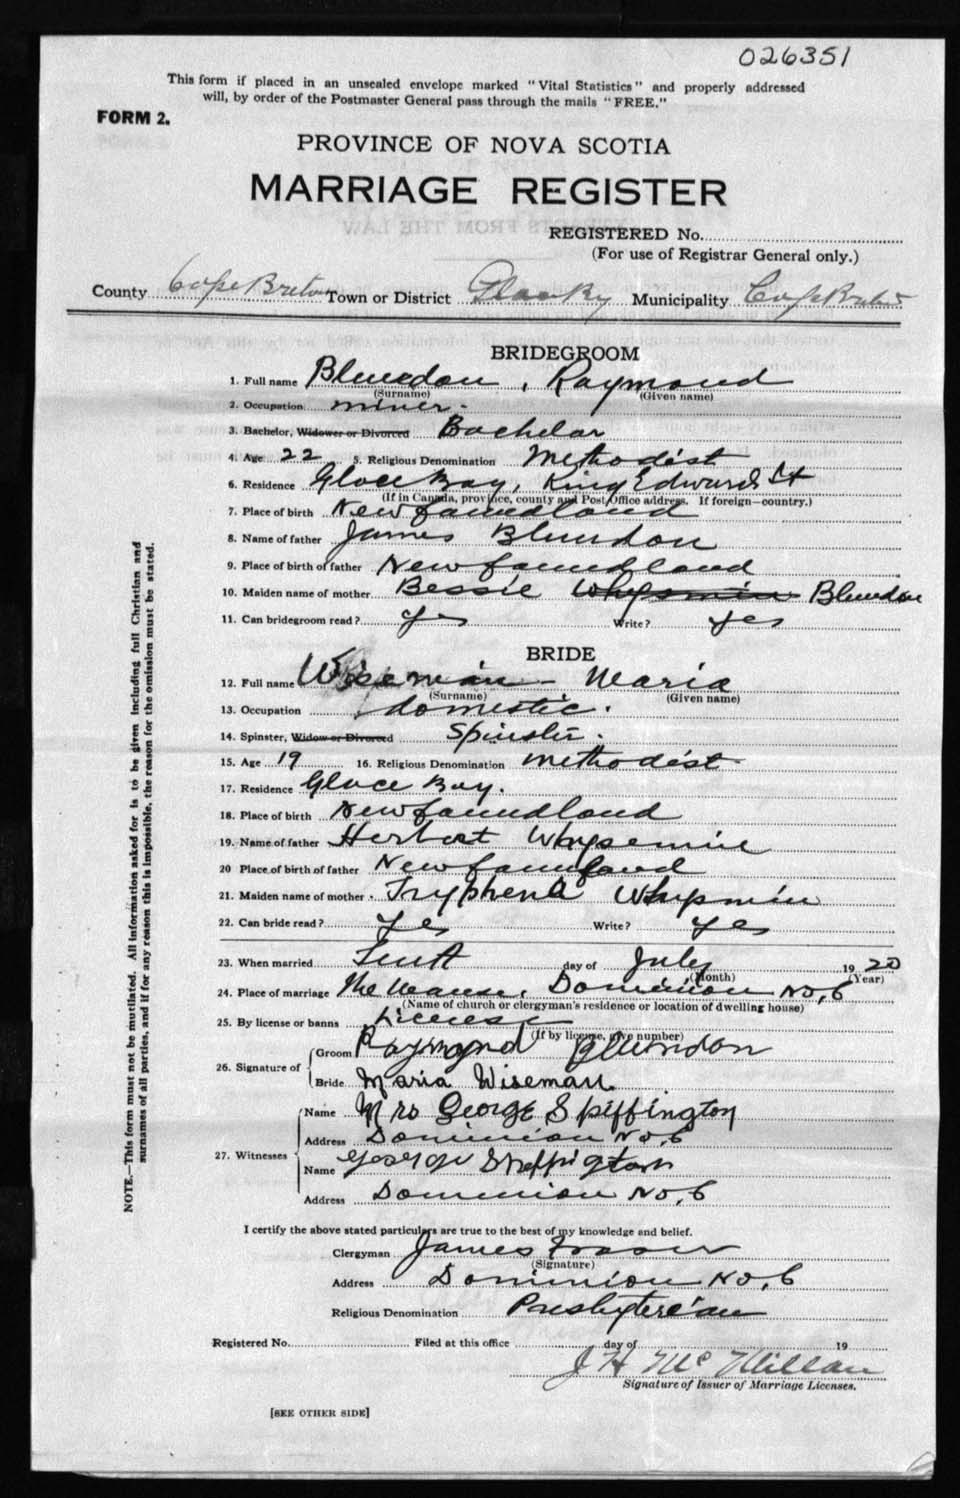 026351
This form if placed in an unsealed envelope marked "Vital Statistics" and properly addressed
will, by order of the Postmaster General pass through the mails "FREE."
FORM 2.
PROVINCE OF NOVA SCOTIA
MARRIAGE REGISTER
REGISTERED No.
(For use of Registrar General only.)
County Cape Breton Town or District Municipality Cape Breton
BRIDEGROOM
1. Full name Blundon, Raymond
(Surname) (Given name)
2. Occupation miner.
3. Bachelor, Widower or Divorced Bachelor
4. Age 22 5. Religious Denomination Methodist
6. Residence Glace Bay, King Edward St
(If in Canada, province, county and Post Office address. If foreign—country.)
7. Place of birth Newfoundland
8. Name of father James Blundon
9. Place of birth of father Newfoundland
10. Maiden name of mother Bessie Blundon
11. Can bridegroom read? yes Write? yes
BRIDE
12. Full name Wiseman - Maria
(Surname) (Given name)
13. Occupation domestic.
14. Spinster, Widow or Divorced Spinster.
15. Age 19 16. Religious Denomination Methodist
17. Residence Glace Bay.
18. Place of birth Newfoundland
19. Name of father Herbert Whysemin
20 Place of birth of father Newfoundland
21. Maiden name of mother. Tryphena Whysmin
22. Can bride read? yes Write? yes
23. When married Tenth day of July 1920
(Month) (Year)
24. Place of marriage The Manse, Dominion No, 6
(Name of church or clergyman's residence or location of dwelling house)
25. By license or banns License
(If by license, give number)
26. Signature of Groom Raymond Blundon
Bride Maria Wiseman
27. Witnesses Name Mrs George Spiffington
Address Dominion No, 6
Name George Spiffington
Address Dominion No, 6
I certify the above stated particulars are true to the best of my knowledge and belief.
Clergyman James Fraser
(Signature)
Address Dominion No, 6
Religious Denomination Presbyterian
Registered No. Filed at this office day of 19
J H McMillan
Signature of Issuer of Marriage Licenses.
[SEE OTHER SIDE]
NOTE.—This form must not be mutilated. All information asked for is to be given including full Christian and
surnames of all parties, and if for any reason this is impossible, the reason for the omission must be stated.